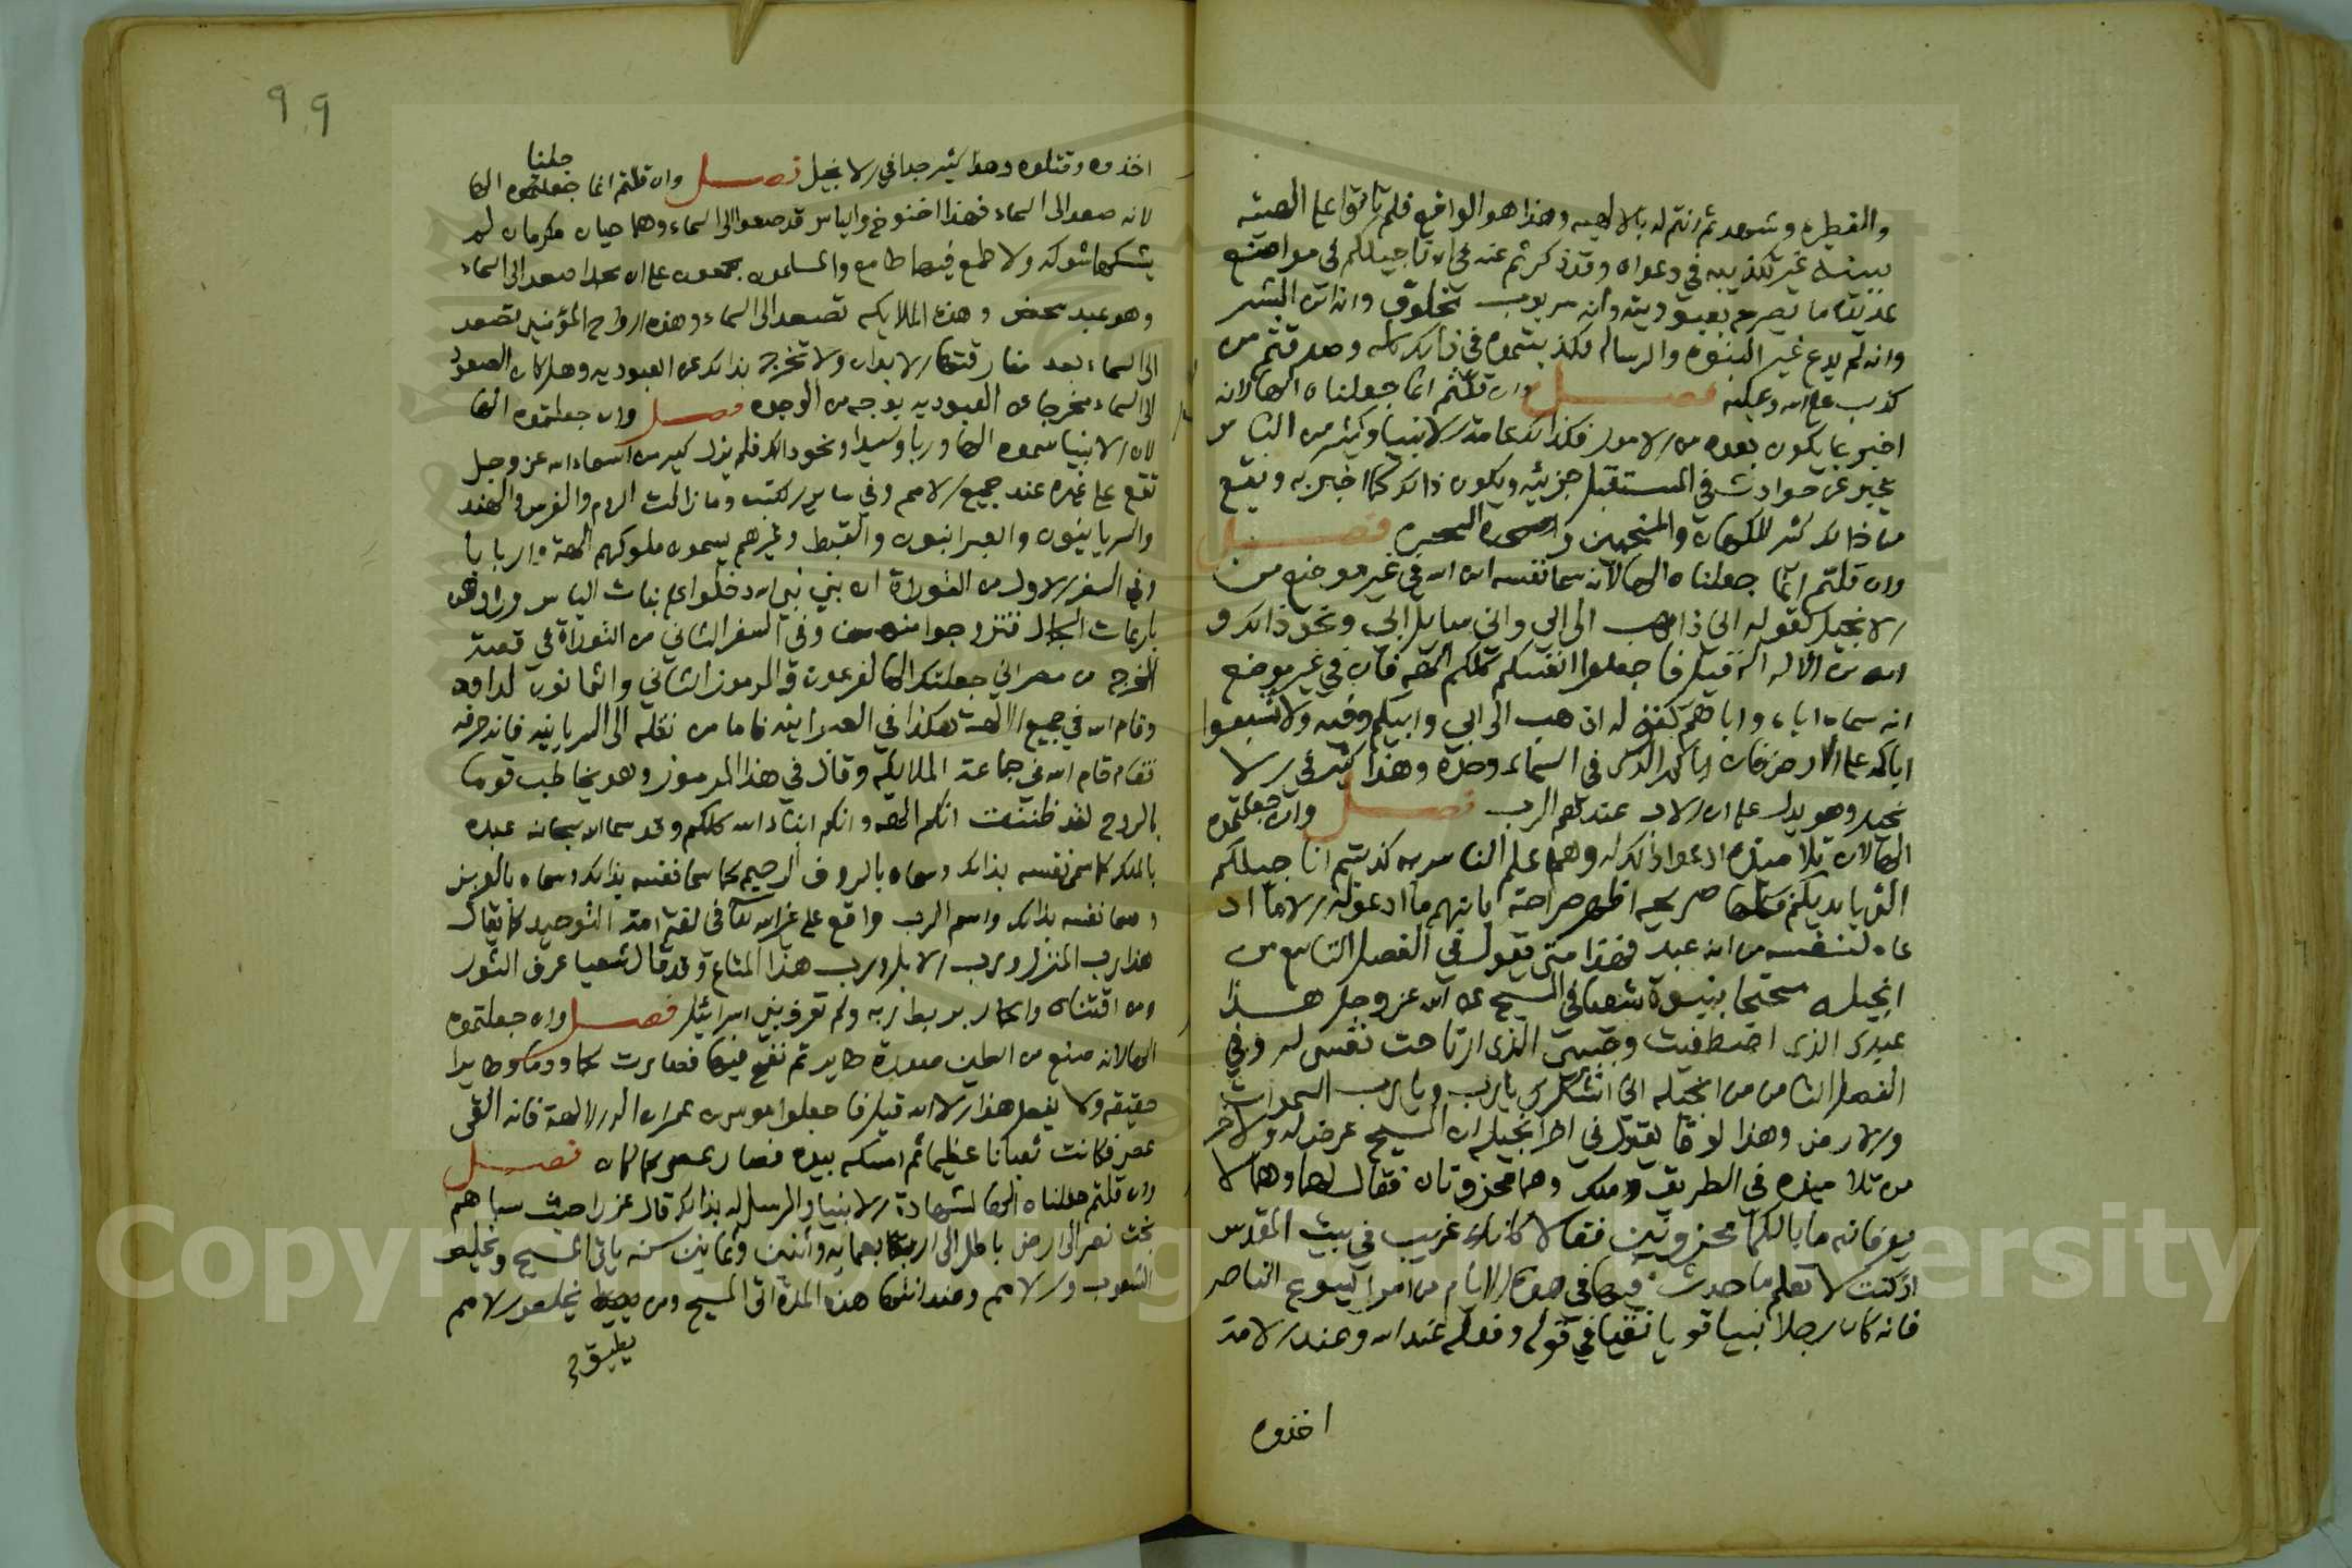 والفطره وشهدتم انتم له بالالهيه وهذا هو الواقع فلم تاتوا على الهيته
ببينة غير تكذيبه في دعواه وقد ذكرتم عنه في اناجيلكم في مواضع
عديدة ما يصرح بعبوديته وانه مربوب مخلوق وانه ابن البشر
وانه لم يدع غير النبوه والرساله فكذبتموه في ذلك كله وصدقتم من
كذب على الله وعليه فصل وان قلتم انما جعلناه الها لانه
اخبر بما يكون بعده من الامور فكذلك عامة الانبيا وكثير من الناس
يخبر عن حوادث في المستقبل جزئيه ويكون ذلك كما اخبر به ويقع
من ذلك كثير للكهان والمنجمين والسحره فصل
وان قلتم انما جعلناه الها لانه سما نفسه ابن الله في غير موضع من
الانجيل كقوله اني ذاهب الى ابي واني سايل ابي ونحو ذلك و
ابن الاله اله قيل فاجعلوا انفسكم كلكم الهه فان في غير موضع
انه سماه اباه واباهم كقوله اذهب الى ابي وابيكم وفيه ولا تنسبوا
اباكم على الارض فان اباكم الذي في السماء وحده وهذا كثير في الا
نجيل وهو يدل على ان الاب عندهم الرب فصل وان جعلتموه
الها لان تلاميذه ادعوا ذلك له وهم اعلم الناس به كذبتم اناجيلكم
التي بايديكم فكلها صريحه اظهر صراحة بانهم ما ادعوا له الا ما اد
عاه لنفسه من انه عبد فهذا متى يقول في الفصل التاسع من
انجيله محتجا بنبوة شعيا في المسيح عن الله عز وجل هذا
عبدي الذي اصطفيت وحبيبي الذي ارتاحت نفسي له وفي
الفصل الثامن من انجيله اني اشكرك يا رب ويا رب السموات
والارض وهذا لوقا يقول في اخر انجيله ان المسيح عرض له ولاخر
من تلاميذه في الطريق ملك وهما محزونان فقال لهما وهما لا
يعرفانه ما بالكما محزونين فقالا كانك غريب في بيت المقدس
اذ كنت لا تعلم ما حدث فيها في هذه الايام من امر ايسوع الناصر
فانه كان رجلا نبيا قويا تقيا في قوله وفعله عند الله وعند الامة
اخذوه
99
اخذوه وقتلوه وهذا كثير جدا في الانجيل فصل وان قلتم انما جعلتموه الها
جعلنا
لانه صعد الى السماء فهذا اخنوخ والياس قد صعدوا الى السماء وهما حيان مكرمان لم
يشكهما شوكه ولا طمع فيهما طامع والمسلمون مجمعون على ان محمدا صعد الى السماء
وهو عبد محض وهذه الملايكه تصعد الى السماء وهذه ارواح المؤمنين تصعد
الى السماء بعد مفارقتها الابدان ولا تخرج بذلك عن العبوديه وهل كان الصعود
الى السماء مخرجا عن العبوديه بوجه من الوجوه فصل وان جعلتموه الها
لان الانبيا سموه الها وربا وسيدا ونحو ذلك فلم يزل كثير من اسماء الله عز وجل
تقع على غيره عند جميع الامم وفي ساير الكتب وما زالت الروم والفرس والهند
والسريانيون والعبرانيون والقبط وغيرهم يسمون ملوكهم الهة واربابا
وفي السفر الاول من التوراة ان بني نبي الله دخلوا على بنات الياس وراوهن
بارعات الجمال فتزوجوا منهن وفي السفر الثاني من التوراة في قصة
الخرج من مصر اني جعلتك الها لفرعون وفي المزمور الثاني والثمانون لداود
وقام الله في جميع الالهة هكذا في العبرانيه فاما من نقله الى السريانيه فانه حرفه
فقال قام الله في جماعة الملايكه وقال في هذا المزمور وهو يخاطب قوما
بالروح لقد ظننت انكم الهه وانكم ابناء الله كلكم وقد سما الله سبحانه عبده
بالملك كما سمى نفسه بذلك وسماه بالروف الرحيم كما سما نفسه بذلك وسماه بالعزيز
وسما نفسه بذلك واسم الرب واقع على غير الله تعالى في لغة امة التوحيد كما يقال
هذا رب المنزل ورب الابل ورب هذا المتاع وقد قال شعيا عرف الثور
من اقتناه والحمار مربط ربه ولم تعرف بني اسرائيل فصل وان جعلتموه
الها لانه صنع من الطين صورة طاير ثم نفخ فيها فصارت لحما ودما وطايرا
حقيقه ولا يفعل هذا الا الله قيل فاجعلوا موسى بن عمران اله الالهة فانه القى
عصى فكانت ثعبانا عظيما ثم امسكه بيده فصار عصى كما كان فصل
وان قلتم جعلناه الها لشهادة الانبيا والرسل له بذلك قال عزرا حيث سباهم
بخت نصر الى ارض بابل الى اربعمايه واثنين وثمانين سنه ياتي المسيح ويخلص
الشعوب والامم وعند انتها هذه المدة اتى المسيح ومن يطيق يخلص الامم
يطيق
Copyright © King Saud University